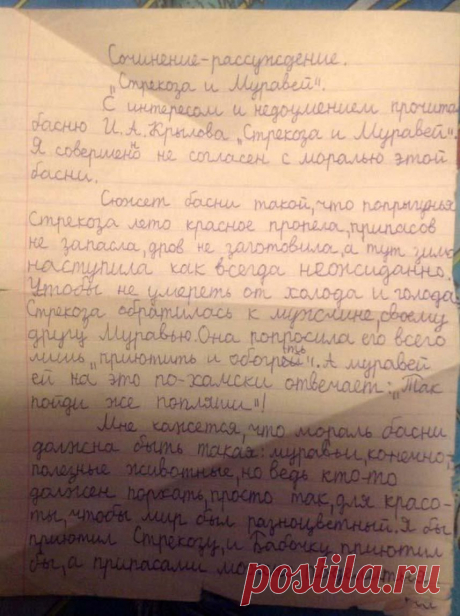 Сочинение-рассуждение.
„Стрекоза и Муравей".
С интересом и недоумением прочита
басню И.А.Крылова „Стрекоза и Муравей".
Я совершенно не согласен с моралью этой
басни.
Сюжет басни такой, что попрыгунья
Стрекоза лето красное пропела, припасов
не запасла, дров не заготовила, а тут зима
наступила как всегда неожиданно.
Чтобы не умереть от холода и голода
Стрекоза обратилась к мужчине, своему
другу Муравью. Она попросила его всего
лишь „приютить и обогреть". А муравей
ей на это по-хамски отвечает: „Так
пойди же попляши"!
Мне кажется, что мораль басни
должна быть такая: муравьи, конечно,
полезные животные, но ведь кто-то
должен порхать, просто так, для красо-
ты, чтобы мир был разноцветный. Я бы
приютил Стрекозу, и Бабочку приютил
бы, а припасами
postila.ru